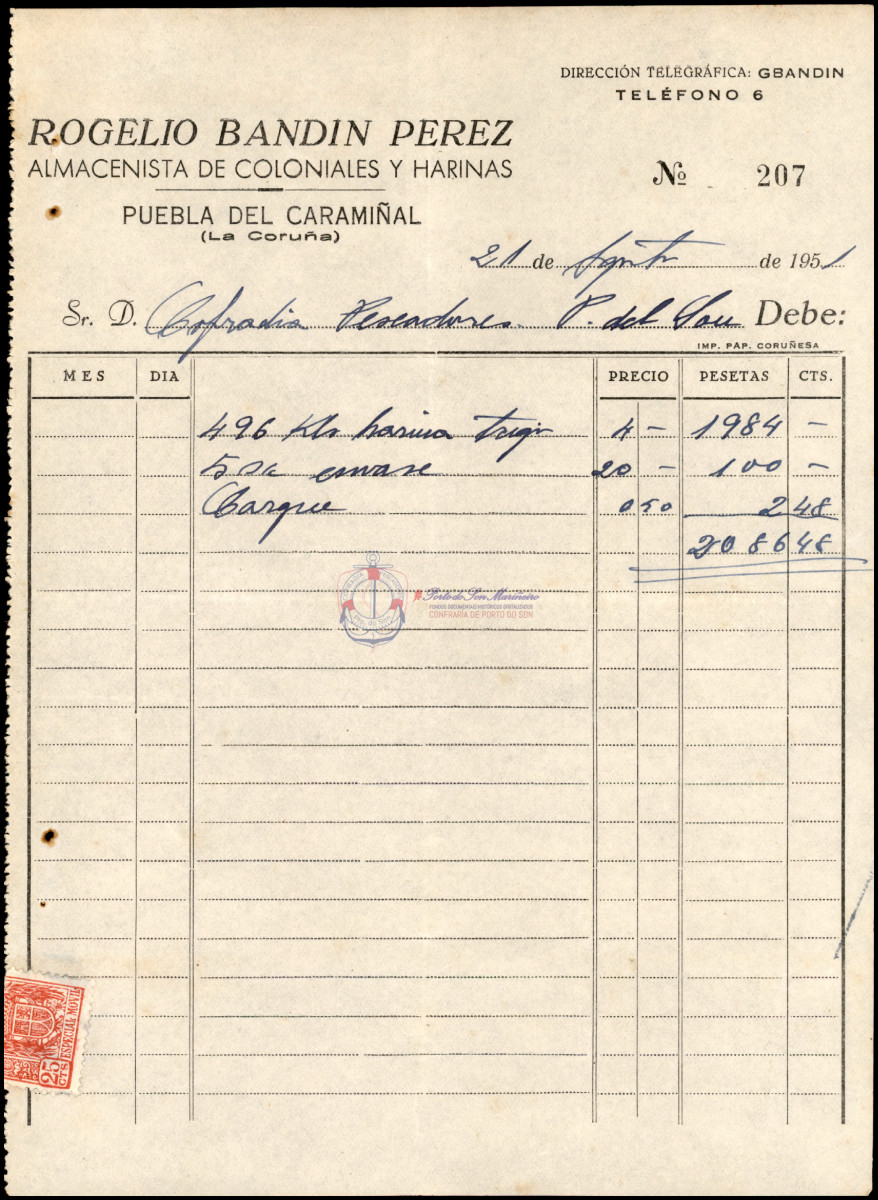 DIRECCIÓN TELEGRÁFICA: GBANDIN
TELÉFONO 6
ROGELIO BANDIN PEREZ
ALMACENISTA DE COLONIALES Y HARINAS
Nº 207
PUEBLA DEL CARAMIÑAL
(La Coruña)
21 de Agosto de 1951
Sr. D. Cofradia Pescadores. P. del Son Debe:
IMP. PAP. CORUÑESA
MES DIA PRECIO PESETAS CTS.
496 Kls harina trigo 4 - 1984 -
5 sc envase 20 - 100 -
Cargue 0 50 2 48
2086 48
Porto do Son Mariñeiro
FONDOS DOCUMENTAIS HISTÓRICOS DIXITALIZADOS
CONFRARÍA DE PORTO DO SON
ESPECIAL MOVIL
25 CTS